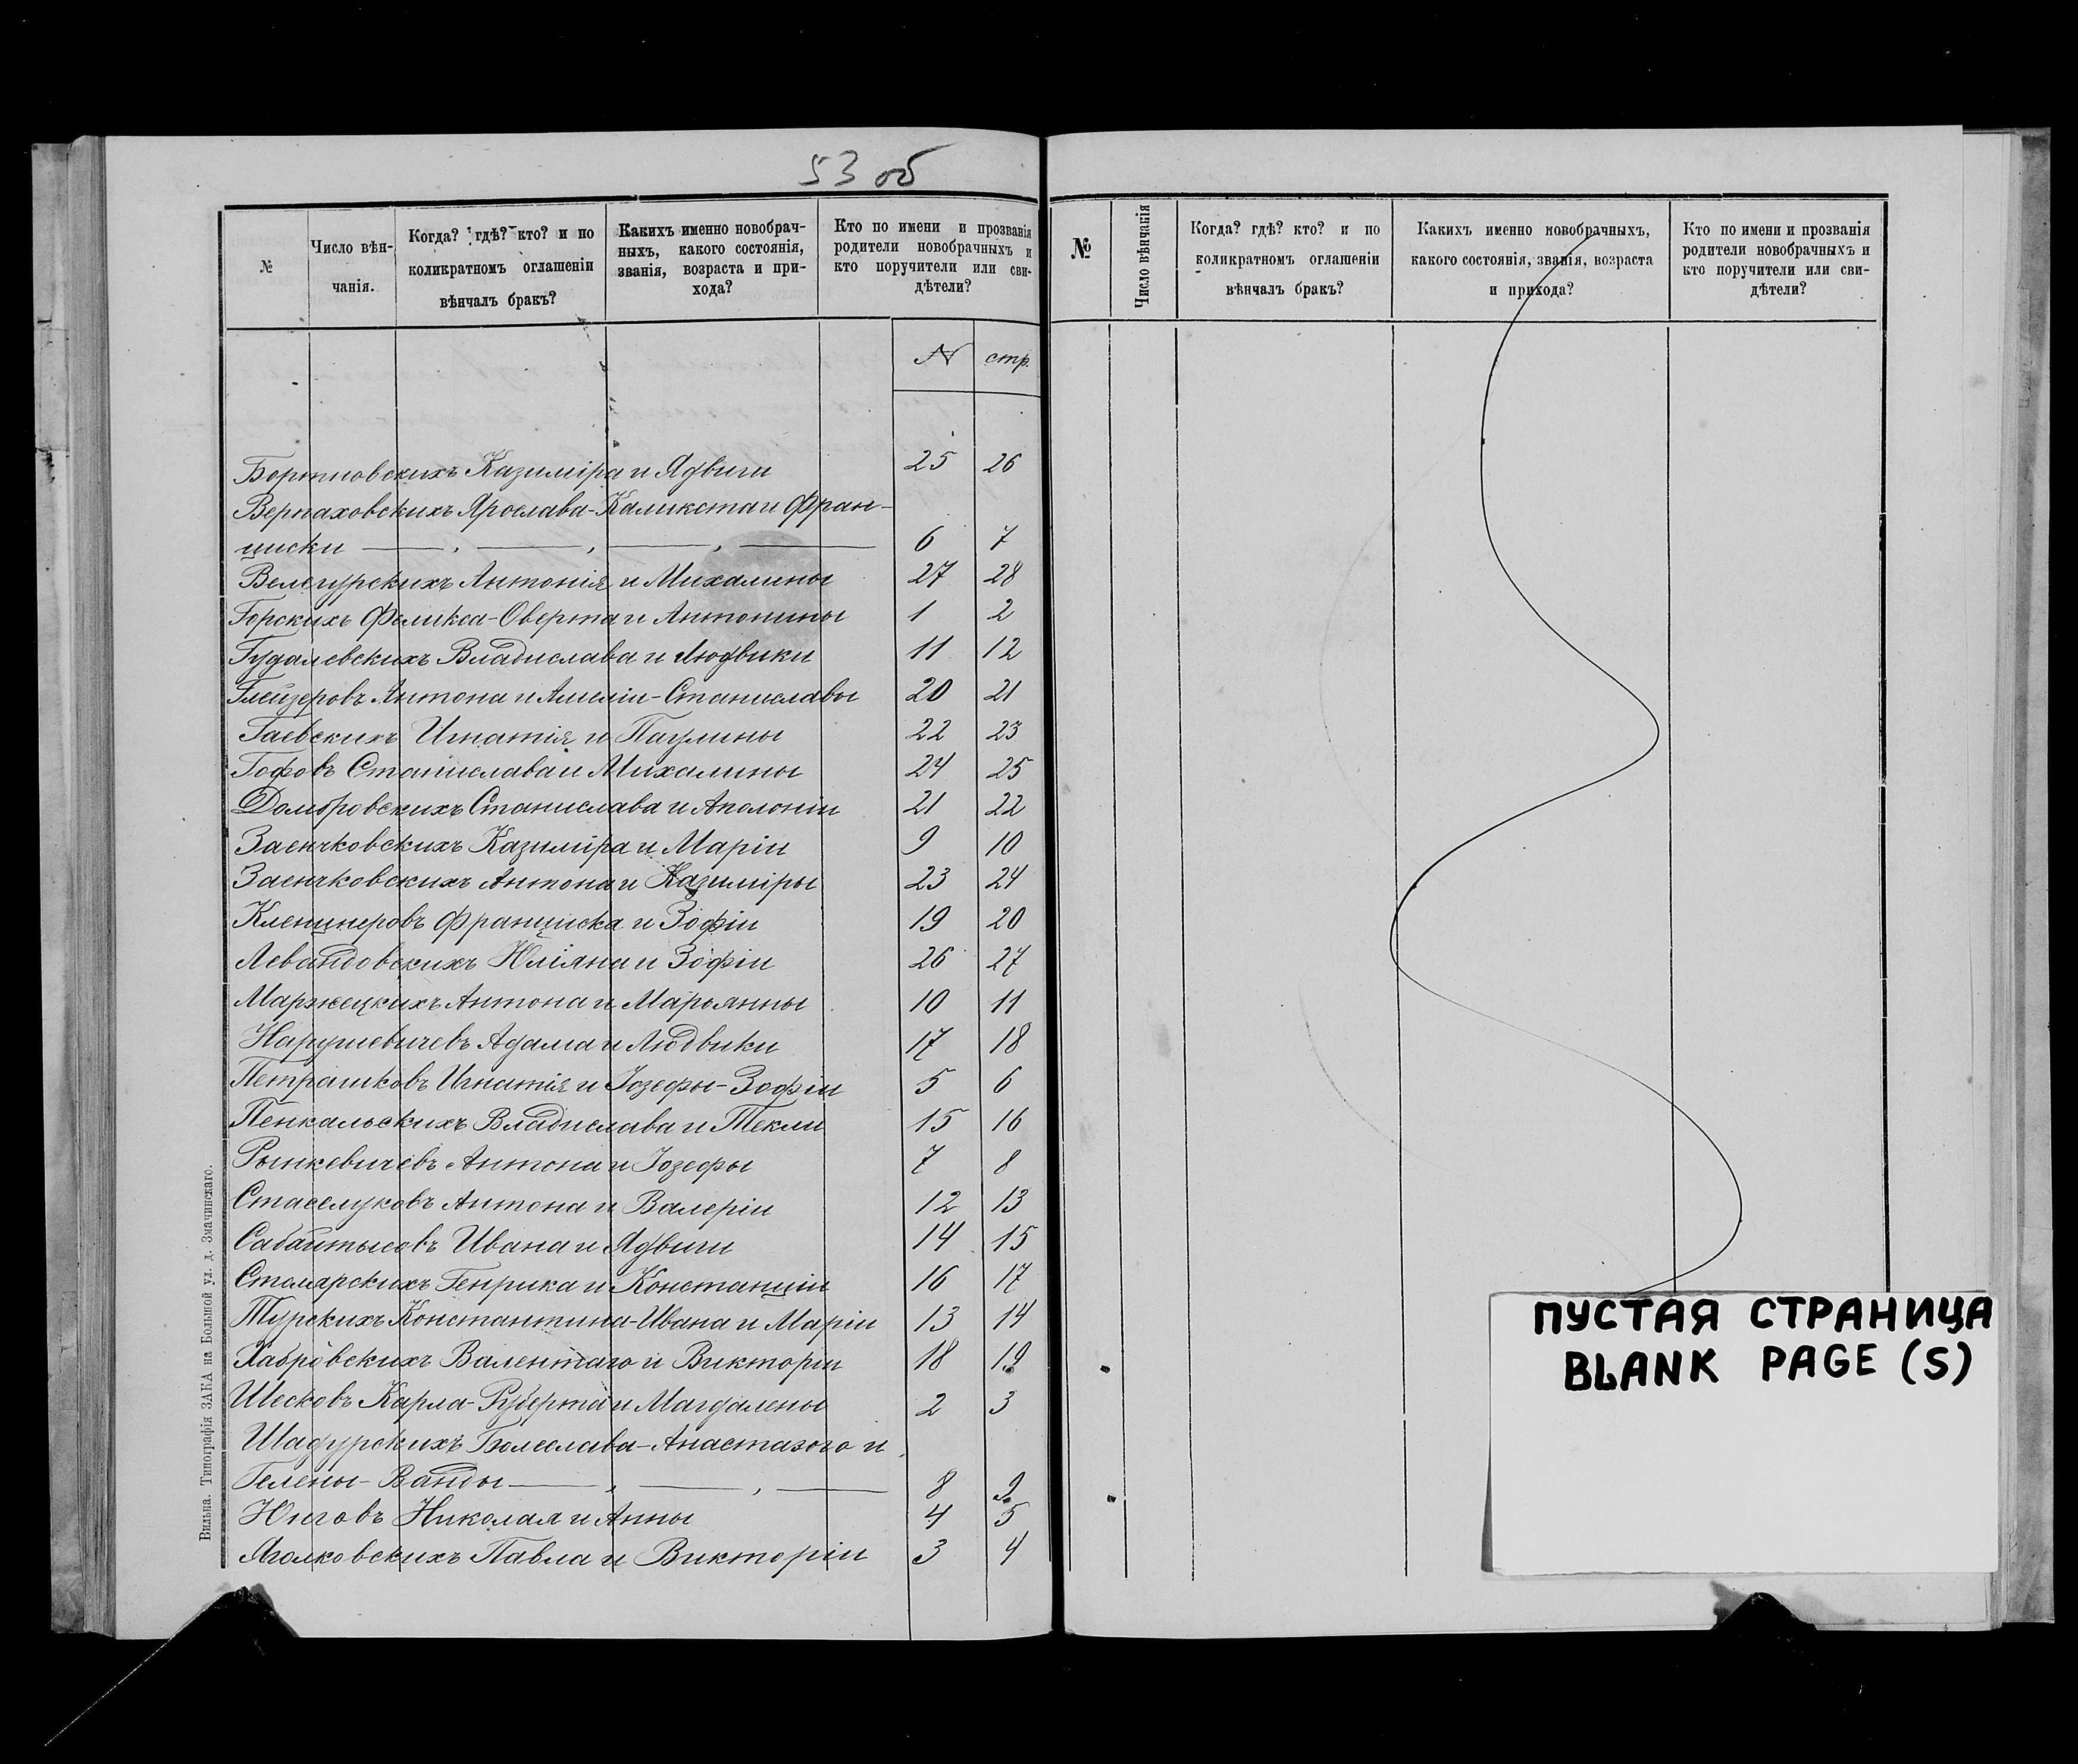 53 об
№
Число вѣн-
чанія.
Когда? гдѣ? кто? и по
коликратномъ оглашеніи
вѣнчалъ бракъ?
Какихъ именно новобрач-
ныхъ, какого состоянія,
званія, возраста и при-
хода?
Кто по имени и прозванія
родители новобрачныхъ и
кто поручители или сви-
дѣтели?
N стр.
Бортновскихъ Казиміра и Ядвиги 25 26
Верпаховскихъ Ярослава-Каликста и Фран-
циски 6 7
Велегурскихъ Антонія и Михалины 27 28
Горскихъ Феликса-Оверта и Антонины 1 2
Гудалевскихъ Владислава и Людвики 11 12
Глейзеровъ Антона и Амеліи-Станиславы 20 21
Гаевскихъ Игнатія и Паулины 22 23
Гофовъ Станислава и Михалины 24 25
Домбровскихъ Станислава и Аполоніи 21 22
Заенчковскихъ Казиміра и Маріи 9 10
Заенчковскихъ Антона и Казиміры 23 24
Кленцнеровъ Франциска и Зофіи 19 20
Левандовскихъ Юліяна и Зофіи 26 27
Маржецкихъ Антона и Марьянны 10 11
Нарушевичевъ Адама и Людвики 17 18
Петрашковъ Игнатія и Іозефы-Зофіи 5 6
Пенкальскихъ Владислава и Текли 15 16
Рынкевичевъ Антона и Іозефы 7 8
Стаселуковъ Антона и Валеріи 12 13
Сабайтысовъ Ивана и Ядвиги 14 15
Столярскихъ Генрика и Констанціи 16 17
Турскихъ Константина-Ивана и Маріи 13 14
Хабровскихъ Валентаго и Викторіи 18 19
Шесковъ Карла-Руберта и Магдалены 2 3
Шадурскихъ Болеслава-Анастазого и
Гелены-Ванды 8 9
Юговъ Николая и Анны 4 5
Яголковскихъ Павла и Викторіи 3 4
Вильна. Типографія ЗАКА на Большой ул. д. Значинскаго.
№
Число вѣнчанія
Когда? гдѣ? кто? и по
коликратномъ оглашеніи
вѣнчалъ бракъ?
Какихъ именно новобрачныхъ,
какого состоянія, званія, возраста
и прихода?
Кто по имени и прозванія
родители новобрачныхъ и
кто поручители или сви-
дѣтели?
ПУСТАЯ СТРАНИЦА
BLANK PAGE (S)